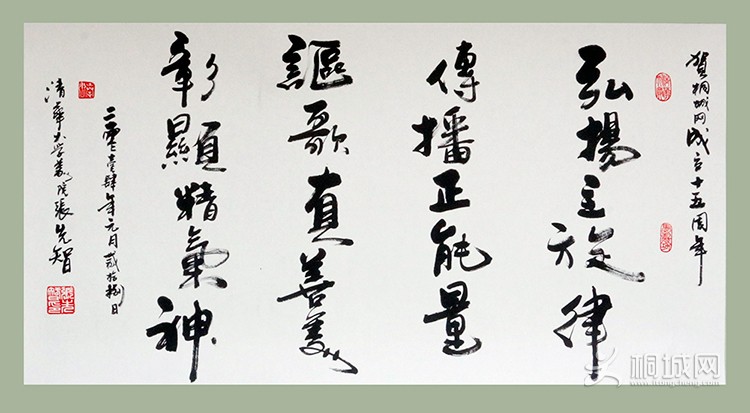 贺桐城网成立十五周年
弘揚主旋律
傳播正能量
謳歌真善美
彰顯精氣神
二零壹肆年元月貳拾捌日
清華大学美院張先智
桐城网
www.tongcheng.com